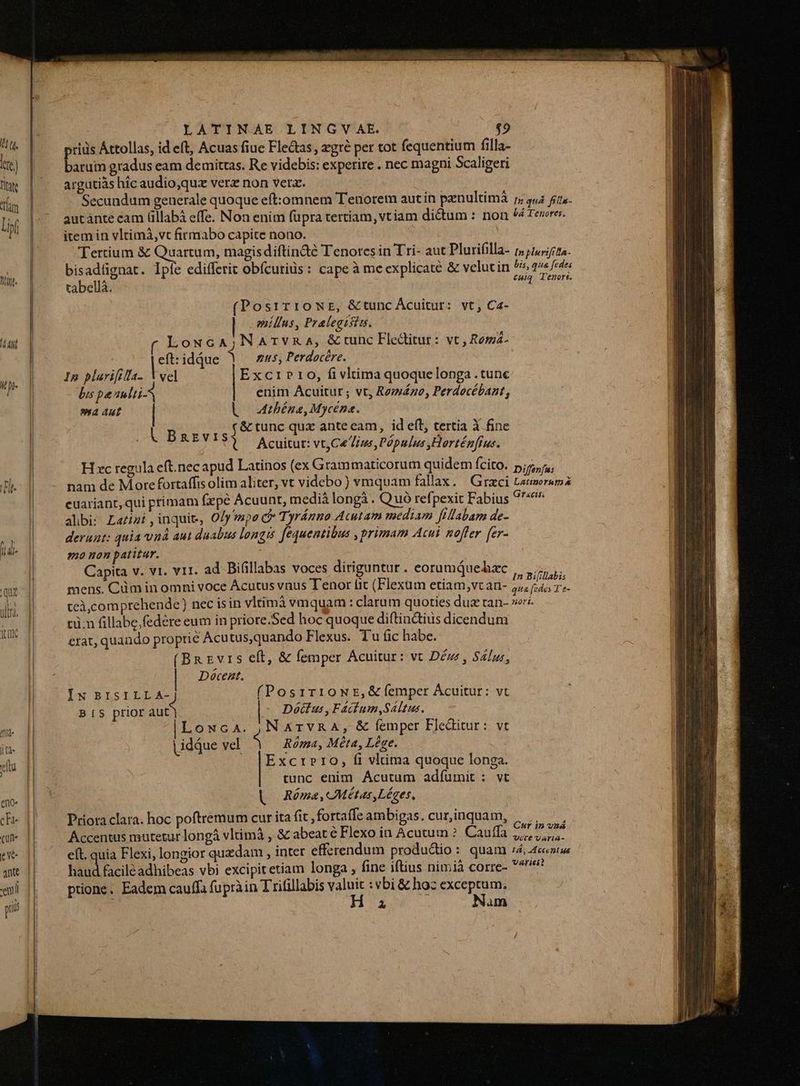 LATINAE LINGVAE. 59
priùs Attollas, id est, Acuas siue Flectas, ægrè per tot sequentium silla-
barum gradus eam demittas. Re videbis: experire. nec magni Scaligeri
argutiàs hîc audio, quæ veræ non veræ.
Secundum generale quoque est: omnem Tenorem aut in pænultimâ
In quâ silla-
aut ànte eam sillabâ esse. Non enim supra tertiam, vt iam dictum: non
bâ Tenores.
item in vltimâ, vt firmabo capite nono.
Tertium & Quartum, magis distinctè Tenores in Tri- aut Plurisilla-
In plurisilla-
bis adsignat. Ipse edisserit obscuriùs: cape à me explicatè & velut in
bis, quæ sedes
tabellâ.
cuiq; Tenori.
POSITIONE, & tunc Acuitur: vt, Ca-
millus, Prælegistis.
LONGA, NATVRA, & tunc Flectitur: vt, Româ-
est: idque nus, Perdocêre.
In plurisilla- vel EXCIPIO, si vltima quoque longa. tunc
bis pænulti- enim Acuitur; vt, Románo, Perdocébant,
ma aut Athénæ, Mycénæ.
& tunc quæ ante eam, id est, tertia à fine
BREVIS Acuitur: vt, Cælius, Pópulus, Horténsius.
Hæc regula est. nec apud Latinos (ex Grammaticorum quidem scito.
Dissensus
nam de More fortassis olim aliter, vt videbo) vmquam fallax. Græci
Latinorum à
euariant, qui primam sæpè Acuunt, mediâ longâ. Quò respexit Fabius
Græcis.
alibi: Latini, inquit, Olympo & Tyránno Acutam mediam sillabam de-
derunt: quia vnâ aut duabus longis sequentibus, primam Acui noster ser-
mo non patitur.
Capita v. vi. vii. ad Bisillabas voces diriguntur. eorumque hæc
In Bisillabis
mens. Cùm in omni voce Acutus vnus Tenor sit (Flexum etiam, vt an-
quæ sedes Te-
teà, comprehende) nec is in vltimâ vmquam: clarum quoties duæ tan-
nori.
tùm sillabę, sedêre eum in priore. Sed hoc quoque distinctiùs dicendum
erat, quando propriè Acutus, quando Flexus. Tu sic habe.
BREVIS est, & semper Acuitur: vt Déus, Sálus,
Dócent.
IN BISILLA- POSITIONE, & semper Acuitur: vt
BIS prior aut Dóctus, Fáctum, Sáltus.
LONGA. NATVRA, & semper Flectitur: vt
idque vel Rôma, Mêta, Lêge.
EXCIPIO, si vltima quoque longa.
tunc enim Acutum adsumit: vt
Róma, Métas, Léges,
Priora clara. hoc postremum cur ita sit, fortasse ambigas. cur, inquam,
Accentus mutetur longâ vltimâ, & abeat è Flexo in Acutum? Caussa
Cur in vnâ
voce varia-
est, quia Flexi, longior quædam, inter efferendum productio: quam
tâ, Accentus
haud facilè adhibeas vbi excipit etiam longa, sine istius nimiâ corre-
variet?
ptione. Eadem caussa suprà in Trisillabis valuit: vbi & hoc exceptum.
H 2 Nam